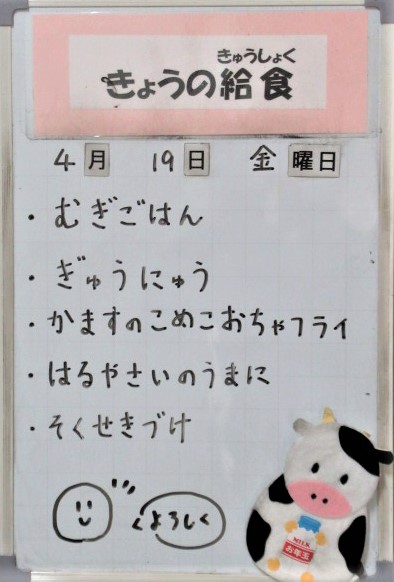 きゅうしょく
きょうの給食
4月 19日 金曜日
・むぎごはん
・ぎゅうにゅう
・かますのこめこおちゃフライ
・はるやさいのうまに
・そくせきづけ
よろしく
MILK
お年玉